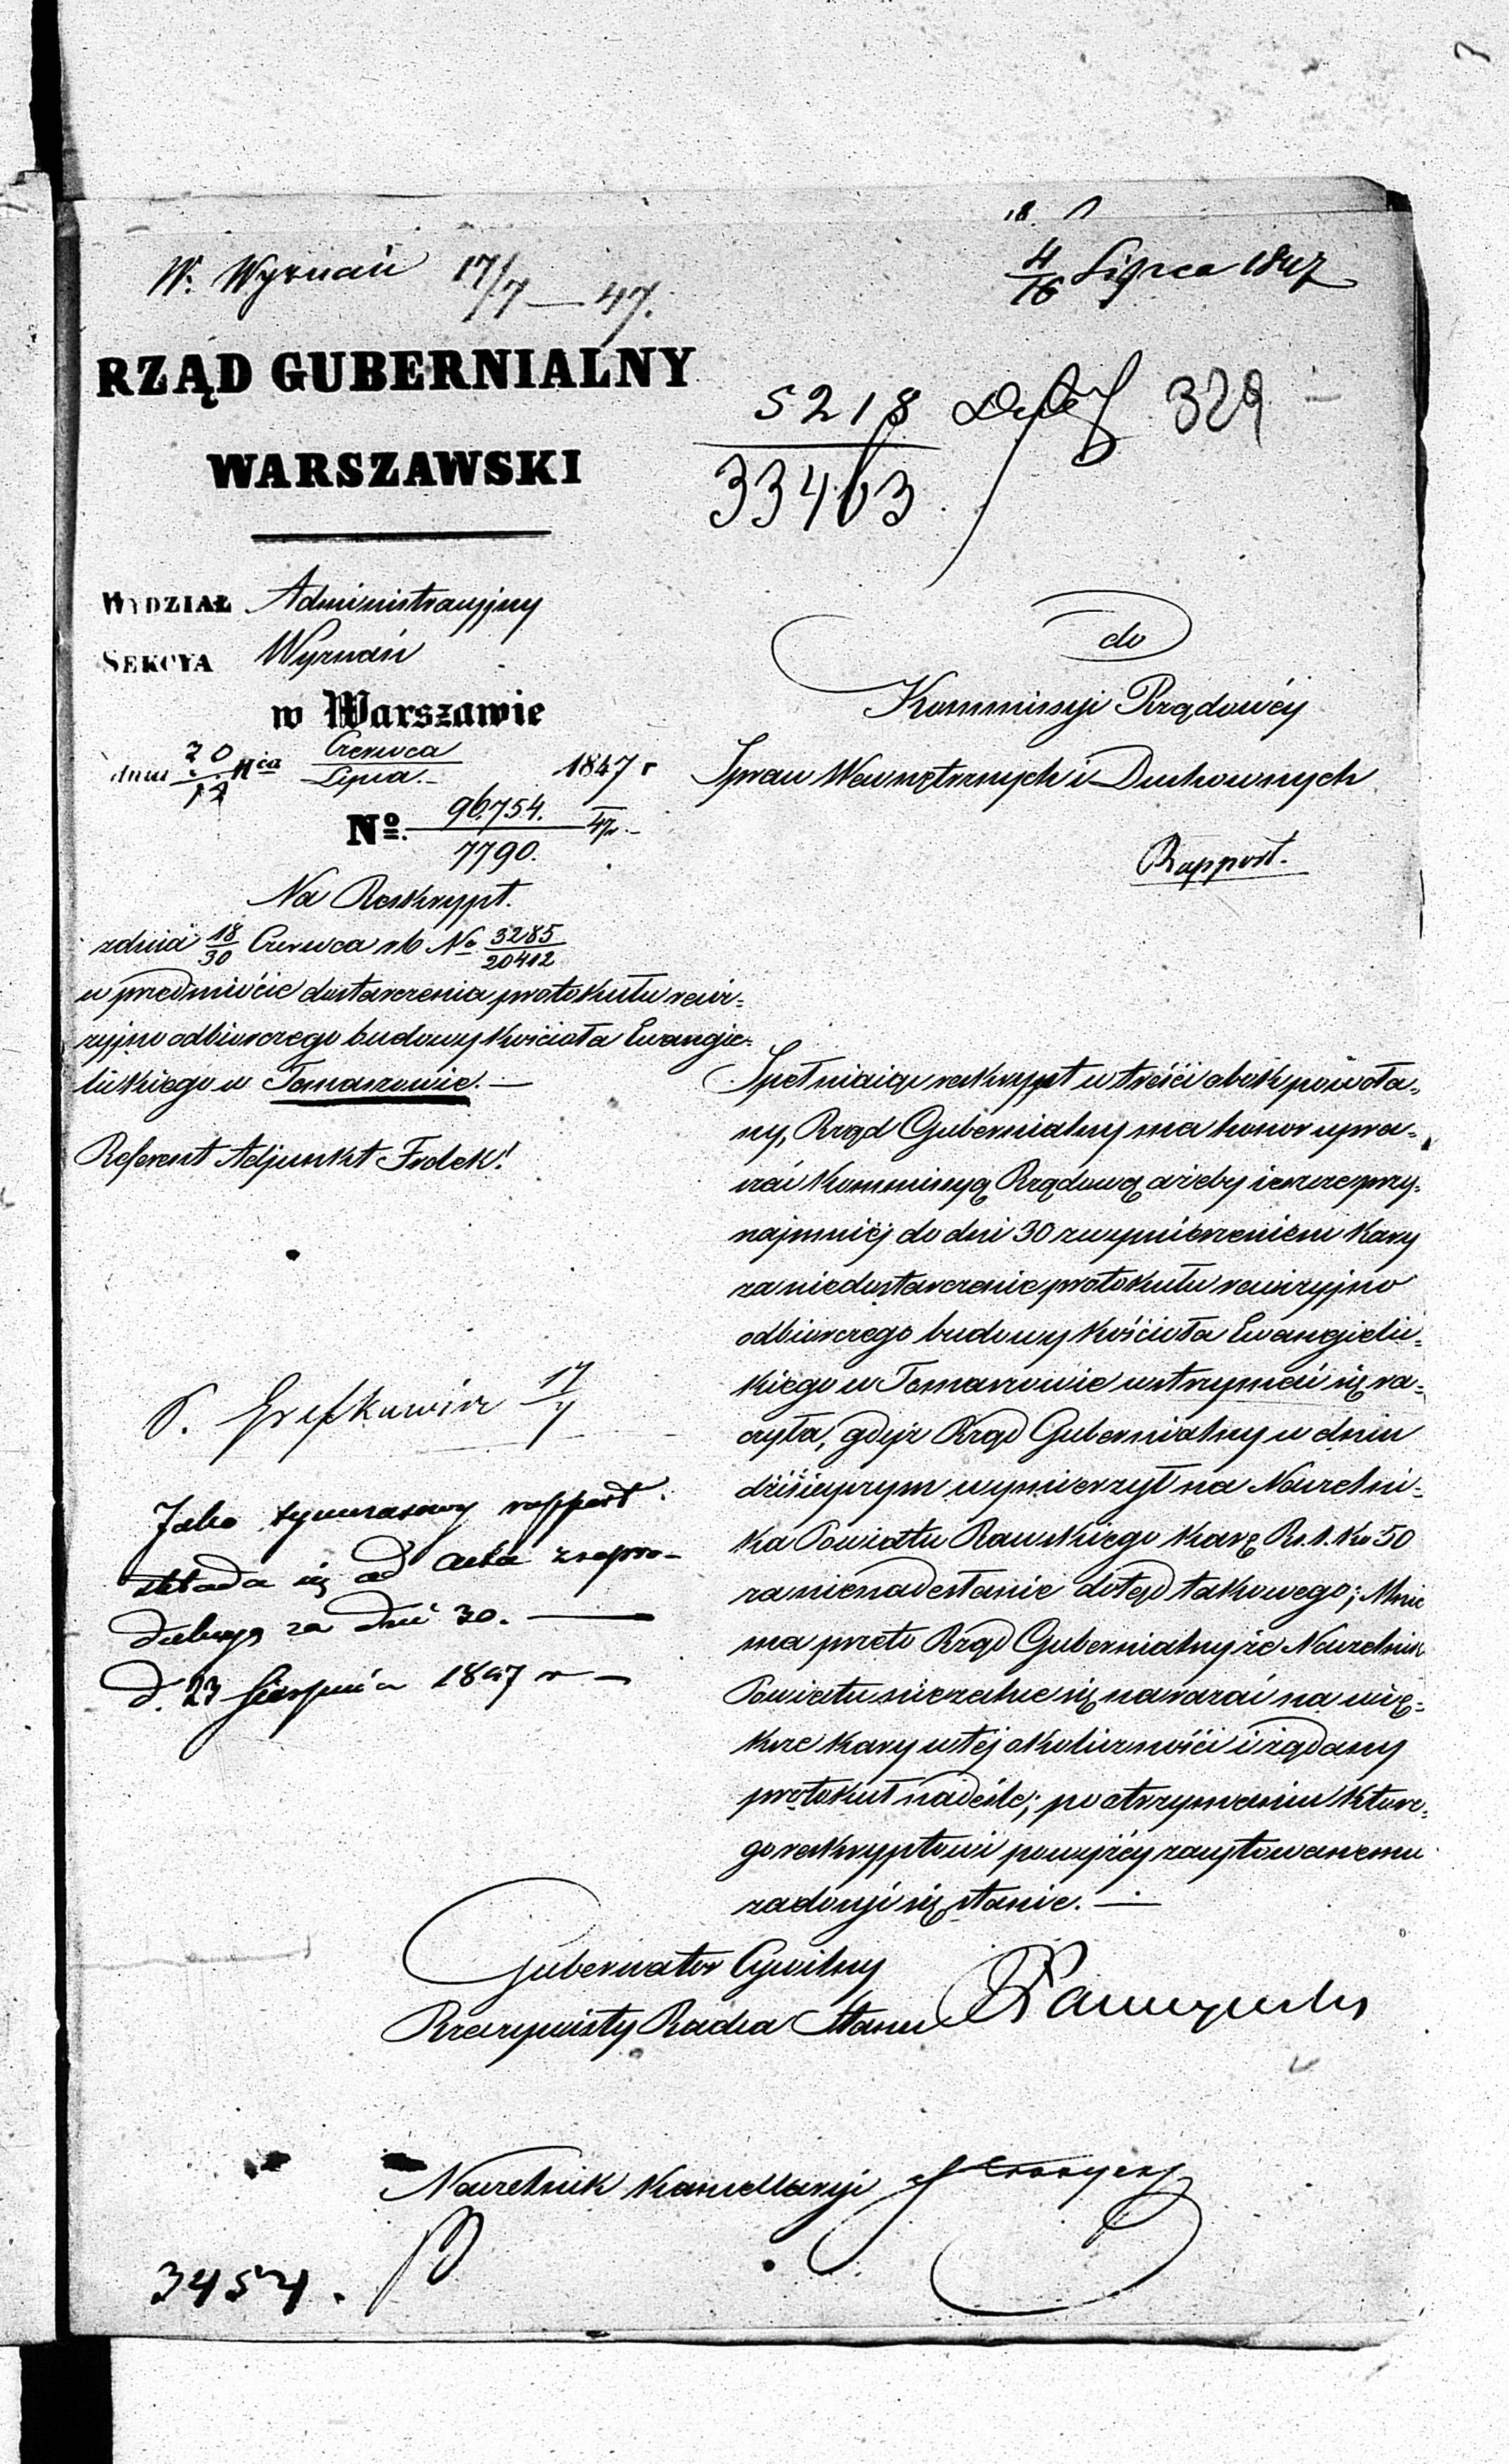 4/16 Lipca 1847
W. Wyznań 17/7 — 47.
RZĄD GUBERNIALNY
WARSZAWSKI
5218
33463
329
WYDZIAŁ Administracyjny
SEKCYA Wyznań
w Warszawie
dnia 30/12 Czerwca/Lipca 1847 r
No. 96754./7790. 47
Na Reskrypt.
z dnia 18/30 Czerwca rb No 3285/20412
w przedmiócie dostarczenia protokułu rewi=
zyjno odbiorczego budowy Kościoła Ewangie=
lickiego w Tomaszowie. —
Referent Adjunkt Frolek!
do
Kommissyi Rządowéy
Spraw Wewnętrznych i Duchownych
Rapport.
Spełniaiąc reskrypt w treści obok powoła=
ny, Rząd Gubernialny ma honor upra=
szać Kommissyą Rządową ażeby ieszcze przy=
najmniéj do dni 30 z wymierzeniem Kary
za niedostarczenie protokułu rewizyjno
odbiorczego budowy Kościoła Ewangielic=
kiego w Tomaszowie wstrzymać się ra=
czyła, gdyż Rząd Gubernialny w dniu
dzisieyszym wymierzył na Naczelni=
ka Powiatu Rawskiego Karę Rs. 1. Ko 50
za nienadesłanie dotąd takowego; Mnie
ma przeto Rząd Gubernialny że Naczelnik
Powiatu niezechce się narazać na wię=
ksze kary w téj okoliczności i żądany
protokuł nadeśle; po otrzymaniu które=
go reskryptowi powyżéy zacytowanemu
zadosyć się stanie. —
17/7
Jako tymczasowy rapport
składa się od akta z repro=
dukcyą za dni 30. —
d. 23 Sierpnia 1847 r —
Gubernator Cywilny
Rzeczywisty Radca Stanu
Naczelnik Kancellaryi
3454.